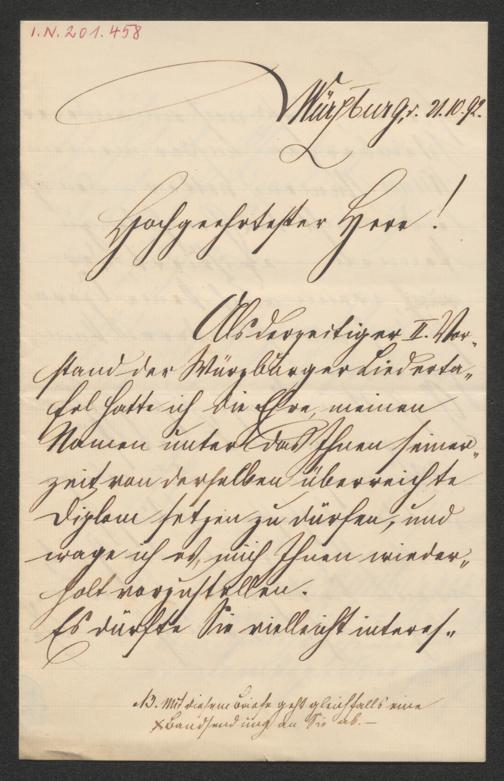 I.N. 201.458
Würzburg, d. 21.10.92.
Hochgeehrtester Herr!
Als derzeitiger II. Vor-
stand der Würzburger Liederta-
fel hatte ich die Ehre, meinen
Namen unter das Ihnen seiner-
zeit von derselben überreichte
Diplom setzen zu dürfen, und
wage ich es, mich Ihnen wieder-
holt vorzustellen.
Es dürfte Sie vielleicht interes-
NB. Mit diesem Briefe geht gleichfalls eine
xbandsendung an Sie ab. —